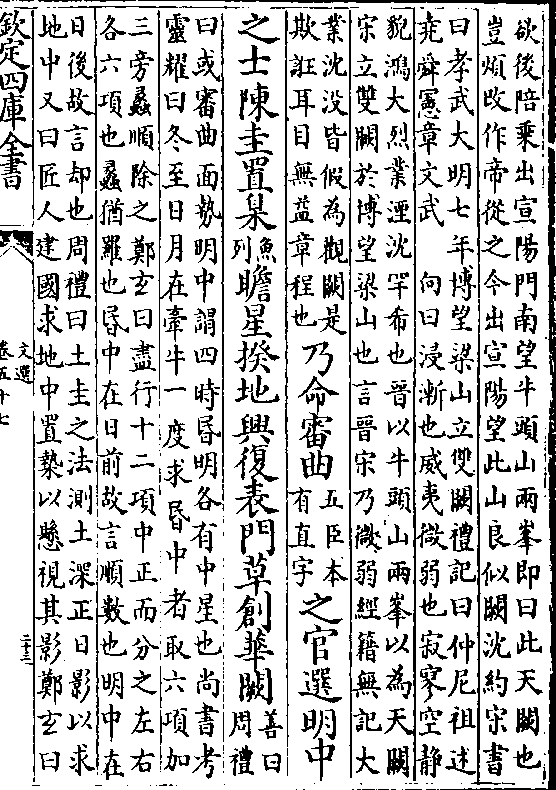 欲後陪乘出宣陽門南望牛頭山兩峯即曰此天闕也
豈煩改作帝從之今出宣陽望此山良似闕沈約宋書
曰孝武大明七年博望梁山立雙闕禮記曰仲尼祖述
堯舜憲章文武　向曰浸漸也威夷微弱也寂寥空静
貌鴻大烈業湮沈罕希也晉以牛頭山兩峯以為天闕
宋立雙闕於博望梁山也言晉宋乃微弱經籍無記大
業沈没皆假為觀闕是
欺誑耳目無益章程也
乃命審曲
五臣本
有直字
之官選明中
之士陳圭置臬
魚
列
瞻星揆地興復表門草創華闕
善曰
周禮
曰或審曲面勢明中謂四時昏明各有中星也尚書考
靈耀曰冬至日月在牽牛一度求昏中者取六項加
三旁蠡順除之鄭玄曰盡行十二項中正而分之左右
各六項也蠡猶羅也昏中在日前故言順數也明中在
日後故言却也周禮曰土圭之法測土深正日影以求
地中又曰匠人建國求地中置槷以懸視其影鄭玄曰
欽定四庫全書
文選
卷五十七
二十三